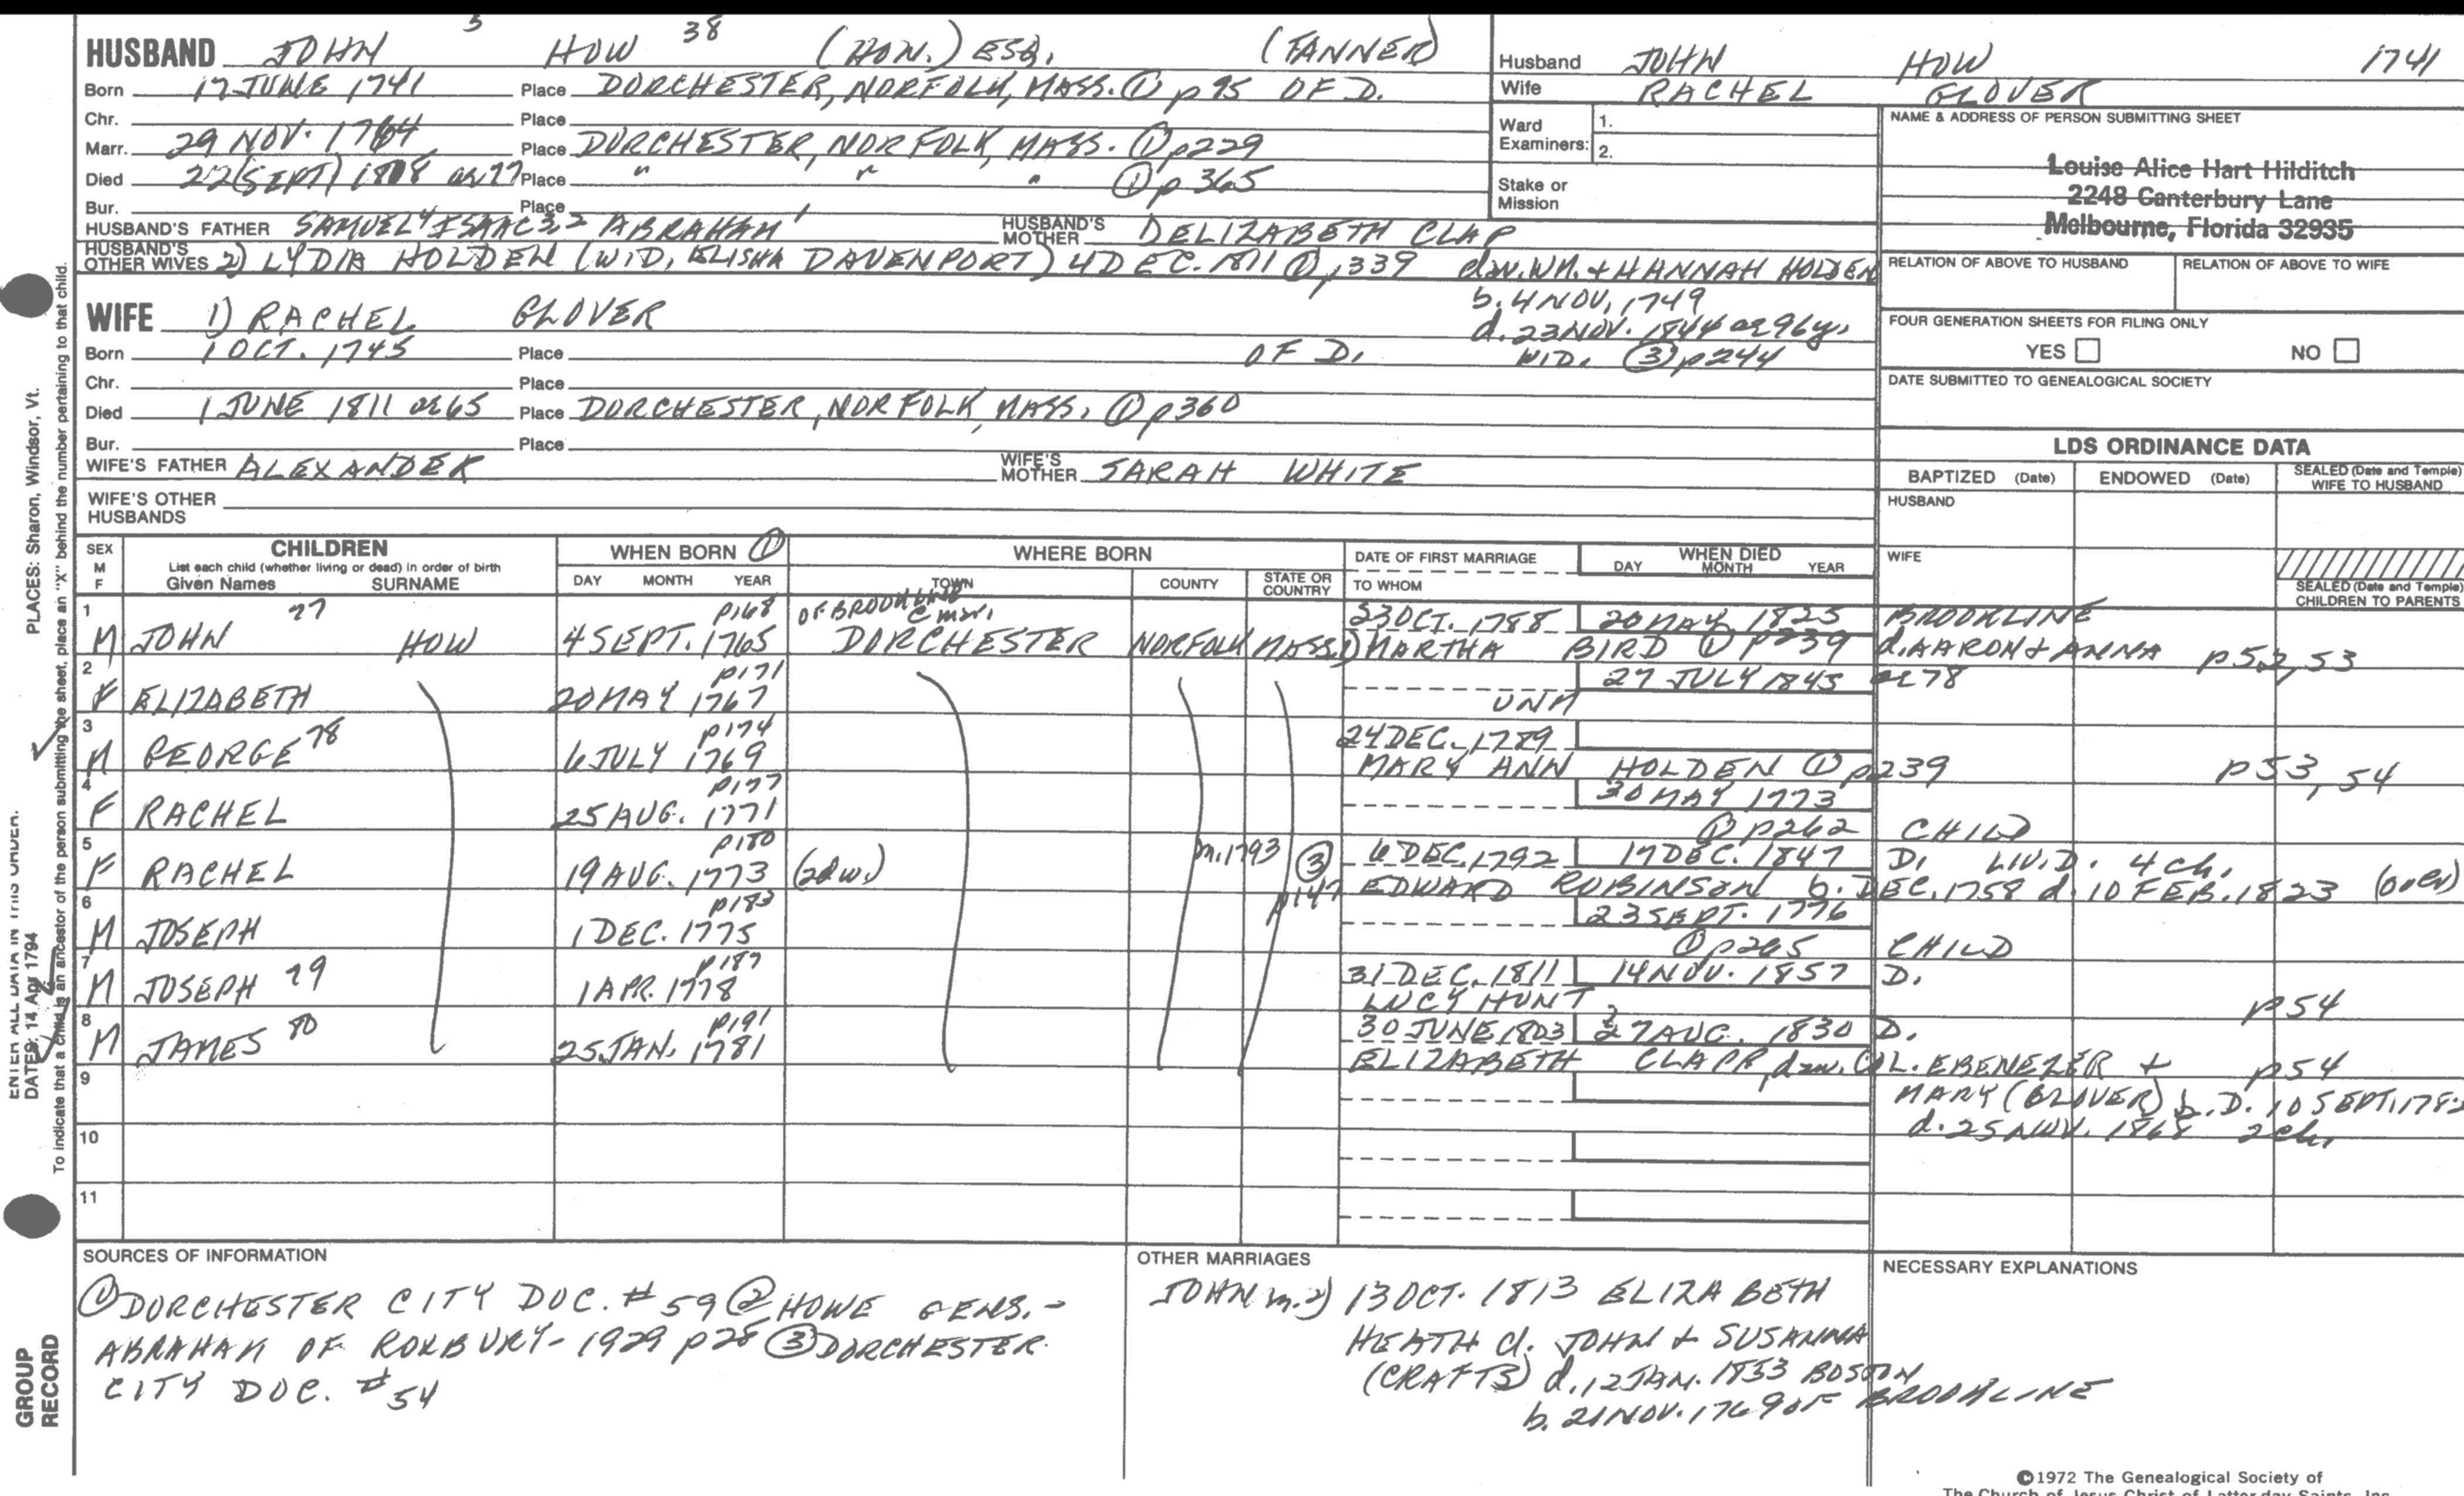 HUSBAND JOHN 5 HOW 38 (HON.) ESQ. (TANNER)
Born 17 JUNE 1741 Place DORCHESTER, NORFOLK, MASS. ① p 95 OF D.
Chr. Place
Marr. 29 NOV. 1764 Place DORCHESTER, NORFOLK, MASS. ① p229
Died 22 (SEPT) 1818 ae 77 Place " " " ① p 365
Bur. Place
HUSBAND'S FATHER SAMUEL 4 ISAAC 3, 2 ABRAHAM 1 HUSBAND'S MOTHER ELIZABETH CLAP
HUSBAND'S OTHER WIVES 2) LYDIA HOLDEN (WID, ELISHA DAVENPORT) 4 DEC. 1811 ① p 339 dau. WM. + HANNAH HOLDEN
b. 4 NOV, 1749
d. 23 NOV. 1844 ae 96y.
WID. ③ p244
WIFE 1) RACHEL GLOVER
Born 1 OCT. 1745 Place OF D.
Chr. Place
Died 1 JUNE 1811 ae 65 Place DORCHESTER, NORFOLK, MASS. ① p360
Bur. Place
WIFE'S FATHER ALEXANDER WIFE'S MOTHER SARAH WHITE
WIFE'S OTHER HUSBANDS
Husband JOHN HOW 1741
Wife RACHEL GLOVER
Ward Examiners: 1.
2.
Stake or Mission
NAME & ADDRESS OF PERSON SUBMITTING SHEET
Louise Alice Hart Hilditch
2248 Canterbury Lane
Melbourne, Florida 32935
RELATION OF ABOVE TO HUSBAND RELATION OF ABOVE TO WIFE
FOUR GENERATION SHEETS FOR FILING ONLY
YES NO
DATE SUBMITTED TO GENEALOGICAL SOCIETY
LDS ORDINANCE DATA
BAPTIZED (Date) ENDOWED (Date) SEALED (Date and Temple) WIFE TO HUSBAND
HUSBAND
WIFE
SEALED (Date and Temple) CHILDREN TO PARENTS
SEX M F CHILDREN WHEN BORN ① WHERE BORN DATE OF FIRST MARRIAGE WHEN DIED
List each child (whether living or dead) in order of birth
Given Names SURNAME DAY MONTH YEAR TOWN COUNTY STATE OR COUNTRY TO WHOM DAY MONTH YEAR
1 77 p168 OF BROOKLINE @ mar. 23 OCT. 1788 20 MAY 1825 BROOKLINE
M JOHN HOW 4 SEPT. 1765 DORCHESTER NORFOLK MASS. 1) MARTHA BIRD ① p239 d. AARON + ANNA p52, 53
2 p171 27 JULY 1845 ae 78
F ELIZABETH 20 MAY 1767 UNM
3 p174 24 DEC. 1789
M GEORGE 78 6 JULY 1769 MARY ANN HOLDEN ① p239 p53, 54
4 p177 30 MAY 1773
F RACHEL 25 AUG. 1771 ① p262 CHILD
5 p180 m. 1793 ③ p147 6 DEC. 1792 17 DEC. 1847 D. LIV. D. 4 ch.
F RACHEL 19 AUG. 1773 (2d w.) EDWARD ROBINSON b. DEC. 1758 d. 10 FEB. 1823 (over)
6 p183 23 SEPT. 1776
M JOSEPH 1 DEC. 1775 ① p265 CHILD
7 p187 31 DEC. 1811 14 NOV. 1857 D.
M JOSEPH 79 1 APR. 1778 LUCY HUNT p54
8 p191 30 JUNE 1803 27 AUG. 1830 D.
M JAMES 80 25 JAN. 1781 ELIZABETH CLAPP, dau. COL. EBENEZER + p54
MARY (GLOVER) b. D. 10 SEPT. 178
d. 25 NOV. 1868 2 ch.
9
10
11
SOURCES OF INFORMATION
① DORCHESTER CITY DOC. # 59 ② HOWE GENS. -
ABRAHAM OF ROXBURY - 1929 p28 ③ DORCHESTER
CITY DOC. # 54
OTHER MARRIAGES
JOHN m. 2) 13 OCT. 1813 ELIZABETH
HEATH d. JOHN + SUSANNA
(CRAFTS) d. 12 JAN. 1853 BOSTON
b. 21 NOV. 1769 OF BROOKLINE
NECESSARY EXPLANATIONS
©1972 The Genealogical Society of
The Church of Jesus Christ of Latter-day Saints, Inc.
PLACES: Sharon, Windsor, Vt.
ENTER ALL DATA IN THIS ORDER.
DATES: 14 Apr 1794
To indicate that a child is an ancestor of the person submitting the sheet, place an "X" behind the number pertaining to that child.
GROUP
RECORD